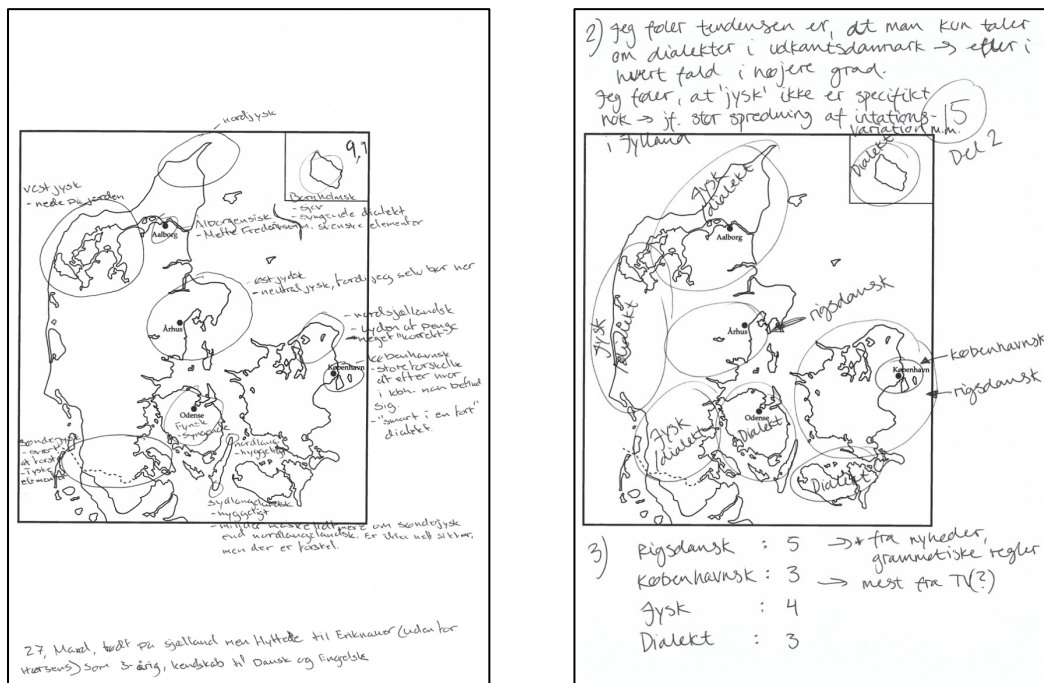 nordjysk
9,1
vestjysk
- nede på jorden
Bornholmsk
- sjov
- syngende dialekt
svenske elementer
Ålborgensisk
- Mette Frederiksen
Aalborg
østjydsk
- neutral jysk, fordi jeg selv bor her
Århus
- nordsjællandsk
- lyden af penge
- meget "korrekt"
København
- københavnsk
- store forskelle
alt efter hvor
i kbh. man befind
sig.
- "smart i en fart"
dialekt.
Odense
Fynsk
- syngende
Sønderjysk
- svært
at forst
- Tyske
elementer
nordlang
- hyggeligt
sydlangelandsk
- hyggeligt
- minder måske lidt mere om sønderjysk
end nordlangelandsk. Er ikke helt sikker,
men der er forskel.
27, Mand, født på sjælland men flyttede til
(udenfor
Horsens) som 3-årig, kendskab til Dansk og Engelsk
2) Jeg føler tendensen er, at man kun taler
om dialekter i udkantsdanmark → eller i
hvert fald i højere grad.
Jeg føler, at 'jysk' ikke er specifikt
nok → jf. stor spredning af intations-
variation m.m.
i Jylland
15
Del 2
Dialekt
Jysk
dialekt
Aalborg
rigsdansk
Århus
Jysk
dialekt
københavnsk
København
rigsdansk
Odense
Dialekt
Jysk
dialekt
Dialekt
3) Rigsdansk : 5 → * fra nyheder,
grammatiske regler
Københavnsk : 3 → mest fra TV(?)
Jysk : 4
Dialekt : 3